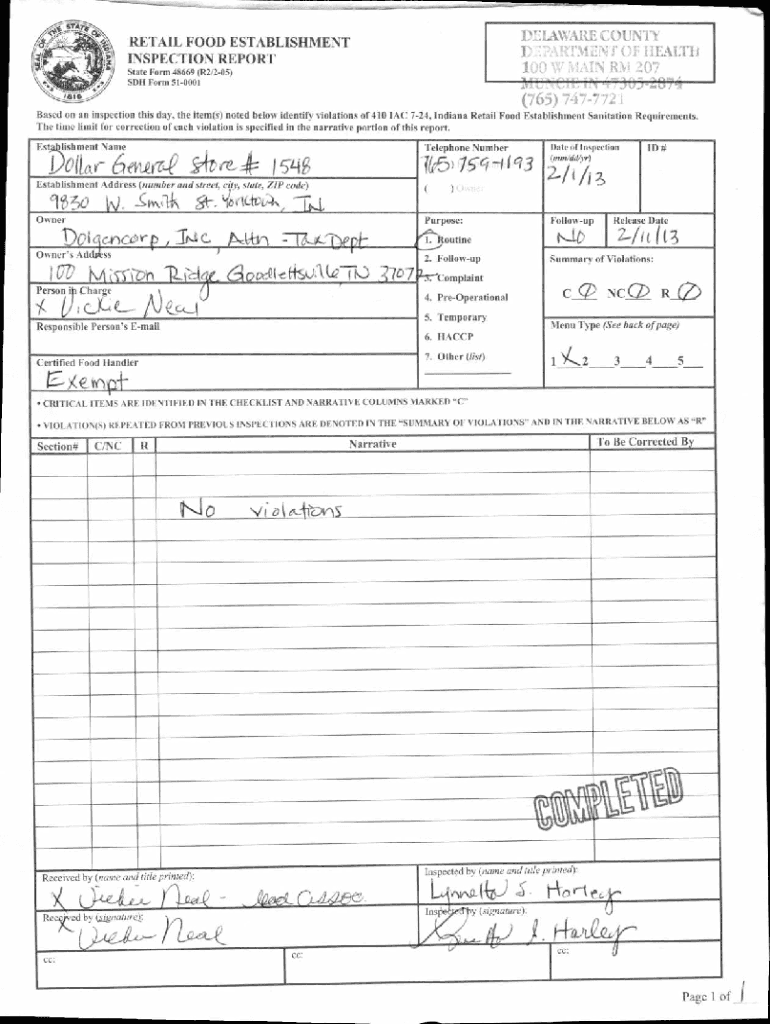 SEAL OF THE STATE OF INDIANA
1816
RETAIL FOOD ESTABLISHMENT
INSPECTION REPORT
State Form 48669 (R2/2-05)
SDH Form 51-0001
DELAWARE COUNTY
DEPARTMENT OF HEALTH
100 W MAIN RM 207
MUNCIE IN 47305-2874
(765) 747-7721
Based on an inspection this day, the item(s) noted below identify violations of 410 IAC 7-24, Indiana Retail Food Establishment Sanitation Requirements.
The time limit for correction of each violation is specified in the narrative portion of this report.
Establishment Name
Dollar General Store # 1548
Telephone Number
765) 759-1193
Date of Inspection
(mm/dd/yr)
2/1/13
ID #
Establishment Address (number and street, city, state, ZIP code)
9830 W. Smith St. Yorktown, IN
( ) Owner
Owner
Dolgencorp, INC Attn - Tax Dept
Purpose:
1. Routine
2. Follow-up
3. Complaint
4. Pre-Operational
5. Temporary
6. HACCP
7. Other (list)
Follow-up
NO
Release Date
2/11/13
Owner's Address
100 Mission Ridge Goodlettsville TN 37072
Summary of Violations:
C 0 NC 0 R 0
Person in Charge
X Vickie Neal
Responsible Person's E-mail
Menu Type (See back of page)
1 X 2 3 4 5
Certified Food Handler
Exempt
• CRITICAL ITEMS ARE IDENTIFIED IN THE CHECKLIST AND NARRATIVE COLUMNS MARKED "C"
• VIOLATION(S) REPEATED FROM PREVIOUS INSPECTIONS ARE DENOTED IN THE "SUMMARY OF VIOLATIONS" AND IN THE NARRATIVE BELOW AS "R"
Section# C/NC R Narrative To Be Corrected By
No violations
COMPLETED
Received by (name and title printed):
X Vickie Neal - lead assoc.
Inspected by (name and title printed):
Lynnetta S. Horley
Received by (signature):
X Vickie Neal
Inspected by (signature):
Harley
cc:
cc:
cc:
Page 1 of 1